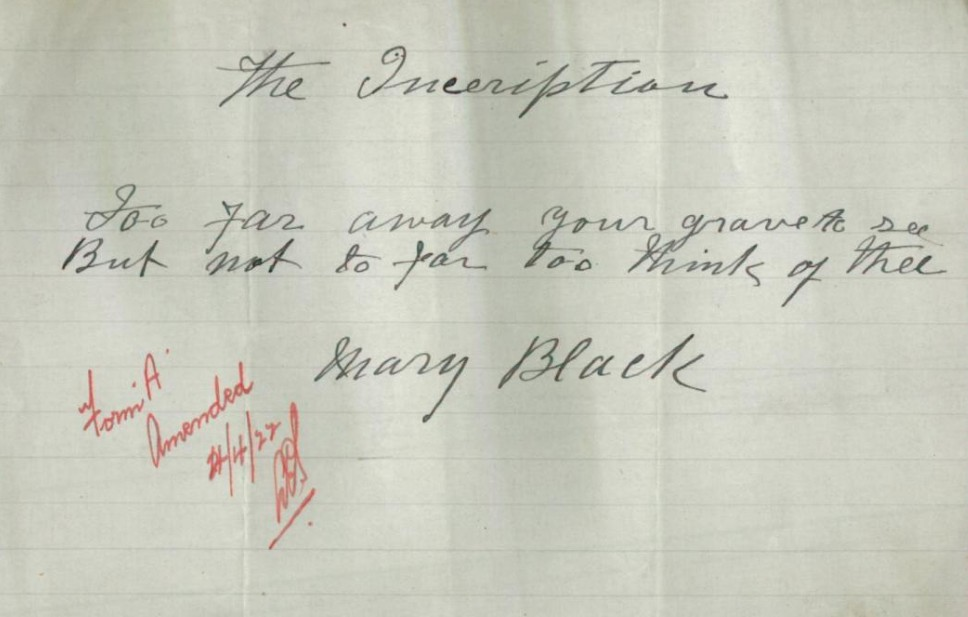 The Inscription
Too far away your grave to see
But not to far too think of thee
Mary Black
Form A
Amended
/4/22